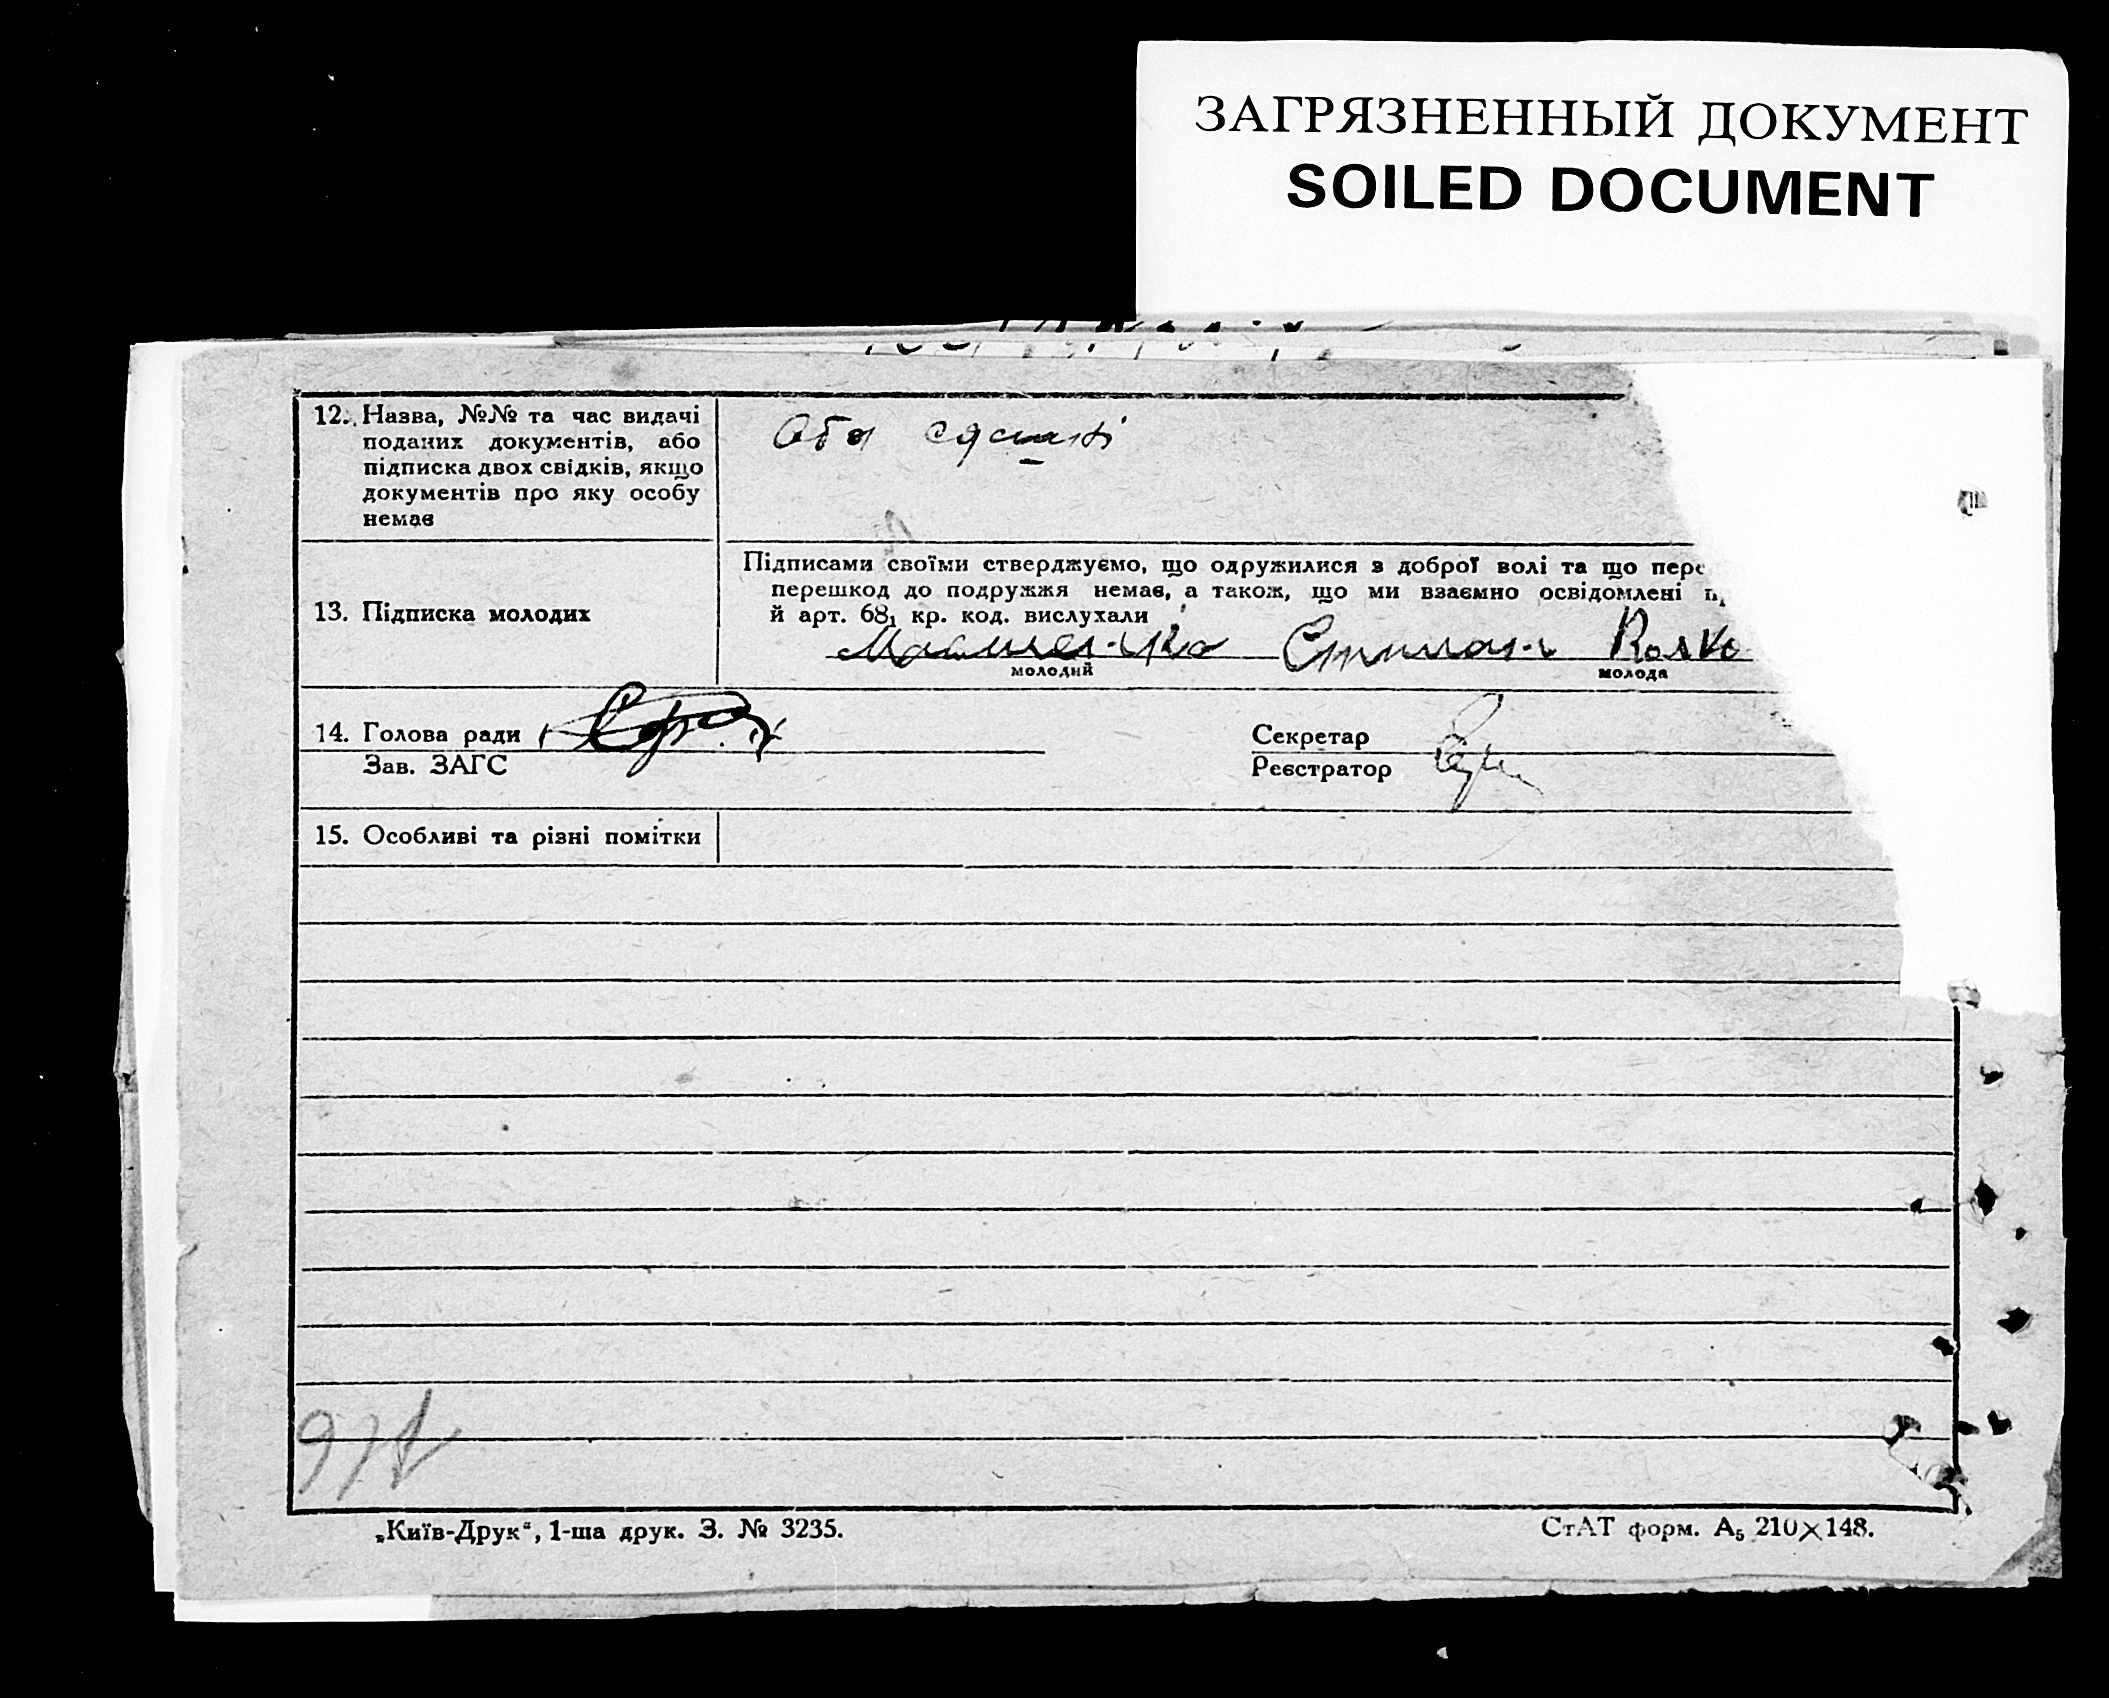 ЗАГРЯЗНЕННЫЙ ДОКУМЕНТ
SOILED DOCUMENT
12. Назва, №№ та час видачі
поданих документів, або
підписка двох свідків, якщо
документів про яку особу
немає
Оба
13. Підписка молодих
Підписами своїми стверджуємо, що одружилися з доброї волі та що пере
перешкод до подружжя немає, а також, що ми взаємно освідомлені
й арт. 68₁ кр. код. вислухали
молодий
молода
14. Голова ради
Зав. ЗАГС
Секретар
Реєстратор
15. Особливі та різні помітки
„Київ-Друк“, 1-ша друк. З. № 3235.
СтАТ форм. А₅ 210×148.